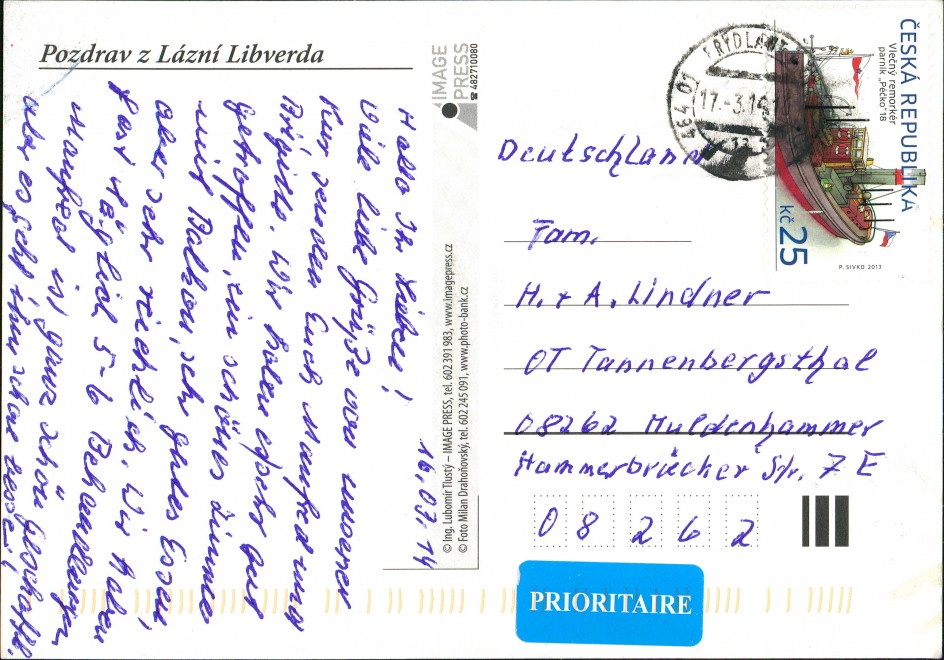 Pozdrav z Lázní Libverda
16.03.14
Hallo Ihr Lieben!
Viele liebe Grüße von unserer
Kur senden Euch Manfred und
Brigitte. Wir haben es sehr gut
getroffen, ein schönes Zimmer
mit Balkon, sehr gutes Essen
aber sehr reichlich. Wir haben
fast täglich 5-6 Behandlungen.
Manfred ist ganz schön geschafft.
aber es geht ihm schon besser,
IMAGE
PRESS
482710080
© Ing. Lubomír Tlustý – IMAGE PRESS, tel. 602 391 983, www.imagepress.cz
© Foto Milan Drahoňovský, tel. 602 245 091, www.photo-bank.cz
FRÝDLANT
464 01
17.-3.14
ČESKÁ REPUBLIKA
Vlečný remorkér
parník „Péčko" 18
Kč 25
P. SIVKO 2013
Deutschland
Fam.
H. + A. Lindner
OT Tannenbergsthal
08262 Muldenhammer
Hammerbrücker Str. 7 E
0 8 2 6 2
PRIORITAIRE